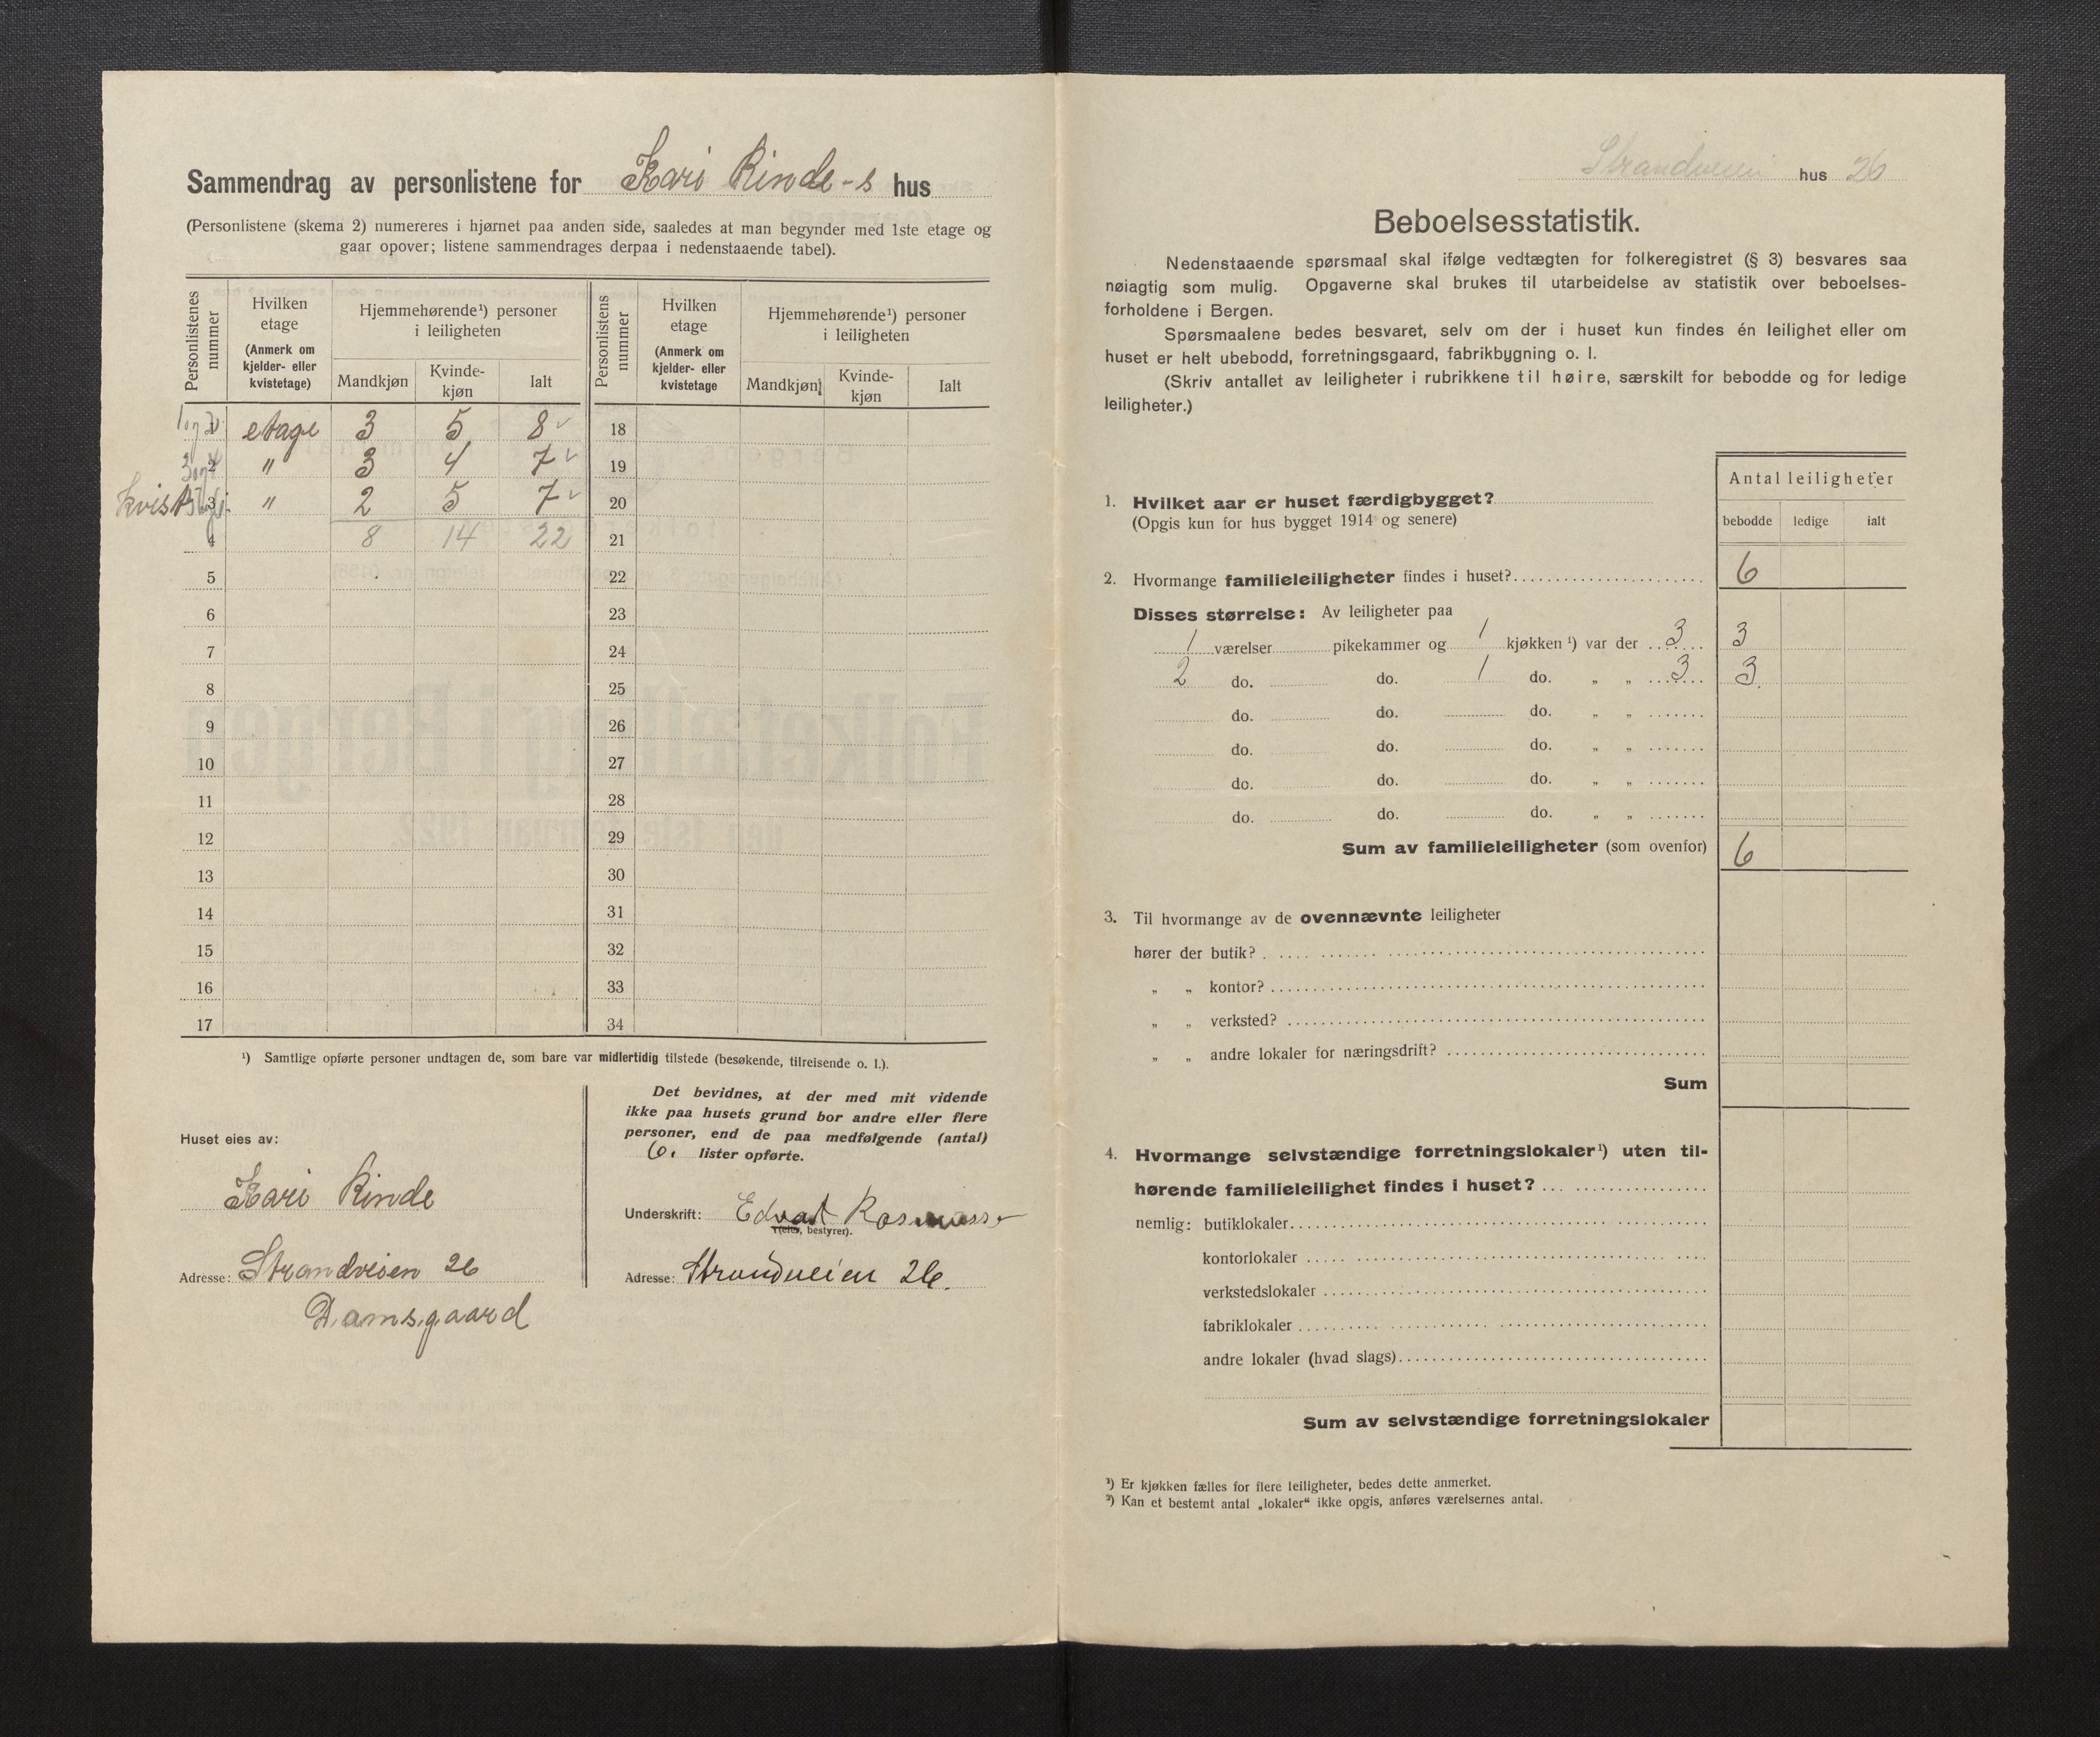 Sammendrag av personlistene for Kari Rinde-s hus
(Personlistene (skema 2) numereres i hjørnet paa anden side, saaledes at man begynder med 1ste etage og
gaar opover; listene sammendrages derpaa i nedenstaaende tabel).
Personlistenes nummer
Hvilken etage (Anmerk om kjelder- eller kvistetage)
Hjemmehørende¹) personer i leiligheten
Mandkjøn Kvinde-kjøn Ialt
Personlistens nummer
Hvilken etage (Anmerk om kjelder- eller kvistetage
Hjemmehørende¹) personer i leiligheten
Mandkjøn Kvinde-kjøn Ialt
1 og 2 etage 3 5 8 18
2 3 og 4 " 3 4 7 19
kvist 3 " 2 5 7 20
4 8 14 22 21
5 22
6 23
7 24
8 25
9 26
10 27
11 28
12 29
13 30
14 31
15 32
16 33
17 34
¹) Samtlige opførte personer undtagen de, som bare var midlertidig tilstede (besøkende, tilreisende o. l.).
Huset eies av:
Kari Rinde
Adresse: Strandveien 26
Damsgaard
Det bevidnes, at der med mit vidende
ikke paa husets grund bor andre eller flere
personer, end de paa medfølgende (antal)
6. lister opførte.
Underskrift: Edvart
(eier, bestyrer).
Adresse: Strandveien 26.
Strandveien hus 26
Beboelsesstatistik.
Nedenstaaende spørsmaal skal ifølge vedtægten for folkeregistret (§ 3) besvares saa
nøiagtig som mulig. Opgaverne skal brukes til utarbeidelse av statistik over beboelses-
forholdene i Bergen.
Spørsmaalene bedes besvaret, selv om der i huset kun findes én leilighet eller om
huset er helt ubebodd, forretningsgaard, fabrikbygning o. l.
(Skriv antallet av leiligheter i rubrikkene til høire, særskilt for bebodde og for ledige
leiligheter.)
Antal leiligheter
bebodde ledige ialt
1. Hvilket aar er huset færdigbygget?
(Opgis kun for hus bygget 1914 og senere)
2. Hvormange familieleiligheter findes i huset? 6
Disses størrelse: Av leiligheter paa
1 værelser pikekammer og 1 kjøkken ¹) var der 3 3
2 do. do. 1 do. „ „ 3 3
do. do. do. „ „
do. do. do. „ „
do. do. do. „ „
do. do. do. „ „
Sum av familieleiligheter (som ovenfor) 6
3. Til hvormange av de ovennævnte leiligheter
hører der butik?
„ „ kontor?
„ „ verksted?
„ „ andre lokaler for næringsdrift?
Sum
4. Hvormange selvstændige forretningslokaler¹) uten til-
hørende familieleilighet findes i huset?
nemlig: butiklokaler
kontorlokaler
verkstedslokaler
fabriklokaler
andre lokaler (hvad slags)
Sum av selvstændige forretningslokaler
¹) Er kjøkken fælles for flere leiligheter, bedes dette anmerket.
²) Kan et bestemt antal „lokaler“ ikke opgis, anføres værelsernes antal.